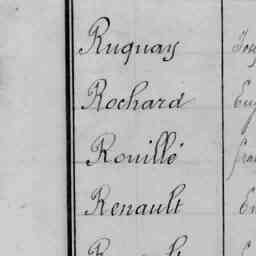 Ruquay
Rochard
Rouillé
Renault